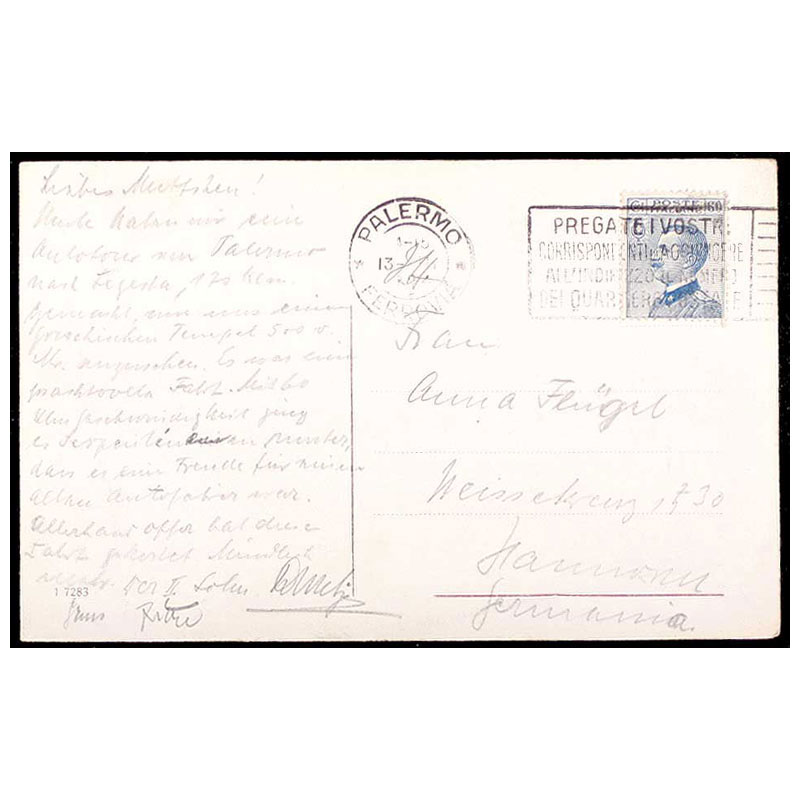 Liebes Muttchen!
Heute haben wir eine
Autotour von Palermo
nach Segesta, 170 Km.
gemacht, um uns einen
griechischen Tempel 500 v.
Chr. anzusehen. Es war eine
prachtvolle Fahrt. Mit 60
Klm Geschwindigkeit ging
es Serpentinen runter,
dass es eine Freude für einen
alten Autofahrer war.
Allerhand
Fahrt gekostet. Mündlich
mehr. Der II. Sohn
1 7283
Gruss
PALERMO
13
FERROVIA
POSTE 60
PREGATE I VOSTRI
CORRISPONDENTI D'AGGIUNGERE
ALL'INDIRIZZO IL NUMERO
DEL QUARTIERE POSTALE
Frau
Anna Flügel
Weissekreuzst 30
Hannover
Germania